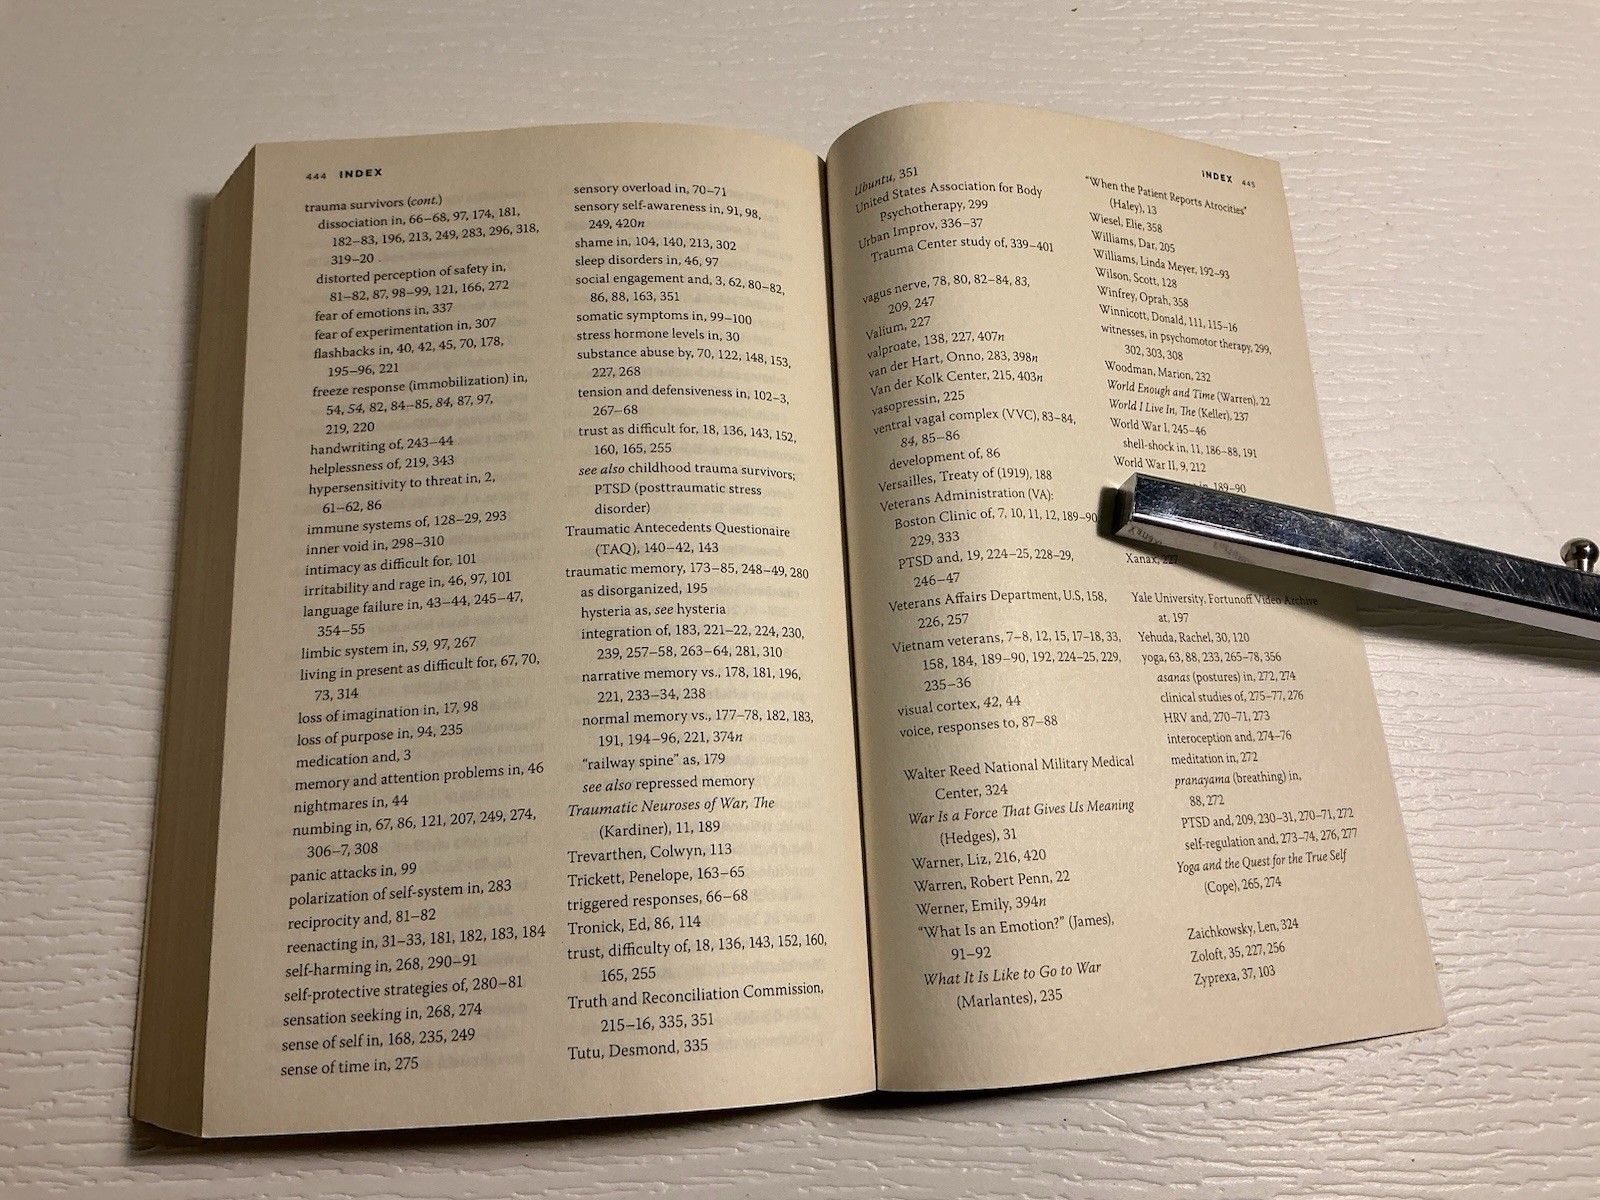 444 INDEX
trauma survivors (cont.)
dissociation in, 66–68, 97, 174, 181,
182–83, 196, 213, 249, 283, 296, 318,
319–20
distorted perception of safety in,
81–82, 87, 98–99, 121, 166, 272
fear of emotions in, 337
fear of experimentation in, 307
flashbacks in, 40, 42, 45, 70, 178,
195–96, 221
freeze response (immobilization) in,
54, 54, 82, 84–85, 84, 87, 97,
219, 220
handwriting of, 243–44
helplessness of, 219, 343
hypersensitivity to threat in, 2,
61–62, 86
immune systems of, 128–29, 293
inner void in, 298–310
intimacy as difficult for, 101
irritability and rage in, 46, 97, 101
language failure in, 43–44, 245–47,
354–55
limbic system in, 59, 97, 267
living in present as difficult for, 67, 70,
73, 314
loss of imagination in, 17, 98
loss of purpose in, 94, 235
medication and, 3
memory and attention problems in, 46
nightmares in, 44
numbing in, 67, 86, 121, 207, 249, 274,
306–7, 308
panic attacks in, 99
polarization of self-system in, 283
reciprocity and, 81–82
reenacting in, 31–33, 181, 182, 183, 184
self-harming in, 268, 290–91
self-protective strategies of, 280–81
sensation seeking in, 268, 274
sense of self in, 168, 235, 249
sense of time in, 275
sensory overload in, 70–71
sensory self-awareness in, 91, 98,
249, 420n
shame in, 104, 140, 213, 302
sleep disorders in, 46, 97
social engagement and, 3, 62, 80–82,
86, 88, 163, 351
somatic symptoms in, 99–100
stress hormone levels in, 30
substance abuse by, 70, 122, 148, 153,
227, 268
tension and defensiveness in, 102–3,
267–68
trust as difficult for, 18, 136, 143, 152,
160, 165, 255
see also childhood trauma survivors;
PTSD (posttraumatic stress
disorder)
Traumatic Antecedents Questionaire
(TAQ), 140–42, 143
traumatic memory, 173–85, 248–49, 280
as disorganized, 195
hysteria as, see hysteria
integration of, 183, 221–22, 224, 230,
239, 257–58, 263–64, 281, 310
narrative memory vs., 178, 181, 196,
221, 233–34, 238
normal memory vs., 177–78, 182, 183,
191, 194–96, 221, 374n
"railway spine" as, 179
see also repressed memory
Traumatic Neuroses of War, The
(Kardiner), 11, 189
Trevarthen, Colwyn, 113
Trickett, Penelope, 163–65
triggered responses, 66–68
Tronick, Ed, 86, 114
trust, difficulty of, 18, 136, 143, 152, 160,
165, 255
Truth and Reconciliation Commission,
215–16, 335, 351
Tutu, Desmond, 335
INDEX 445
Ubuntu, 351
United States Association for Body
Psychotherapy, 299
Urban Improv, 336–37
Trauma Center study of, 339–401
vagus nerve, 78, 80, 82–84, 83,
209, 247
Valium, 227
valproate, 138, 227, 407n
van der Hart, Onno, 283, 398n
Van der Kolk Center, 215, 403n
vasopressin, 225
ventral vagal complex (VVC), 83–84,
84, 85–86
development of, 86
Versailles, Treaty of (1919), 188
Veterans Administration (VA):
Boston Clinic of, 7, 10, 11, 12, 189–90,
229, 333
PTSD and, 19, 224–25, 228–29,
246–47
Veterans Affairs Department, U.S, 158,
226, 257
Vietnam veterans, 7–8, 12, 15, 17–18, 33,
158, 184, 189–90, 192, 224–25, 229,
235–36
visual cortex, 42, 44
voice, responses to, 87–88
Walter Reed National Military Medical
Center, 324
War Is a Force That Gives Us Meaning
(Hedges), 31
Warner, Liz, 216, 420
Warren, Robert Penn, 22
Werner, Emily, 394n
"What Is an Emotion?" (James),
91–92
What It Is Like to Go to War
(Marlantes), 235
"When the Patient Reports Atrocities"
(Haley), 13
Wiesel, Elie, 358
Williams, Dar, 205
Williams, Linda Meyer, 192–93
Wilson, Scott, 128
Winfrey, Oprah, 358
Winnicott, Donald, 111, 115–16
witnesses, in psychomotor therapy, 299,
302, 303, 308
Woodman, Marion, 232
World Enough and Time (Warren), 22
World I Live In, The (Keller), 237
World War I, 245–46
shell-shock in, 11, 186–88, 191
World War II, 9, 212
in, 189–90
Xanax, 227
Yale University, Fortunoff Video Archive
at, 197
Yehuda, Rachel, 30, 120
yoga, 63, 88, 233, 265–78, 356
asanas (postures) in, 272, 274
clinical studies of, 275–77, 276
HRV and, 270–71, 273
interoception and, 274–76
meditation in, 272
pranayama (breathing) in,
88, 272
PTSD and, 209, 230–31, 270–71, 272
self-regulation and, 273–74, 276, 277
Yoga and the Quest for the True Self
(Cope), 265, 274
Zaichkowsky, Len, 324
Zoloft, 35, 227, 256
Zyprexa, 37, 103